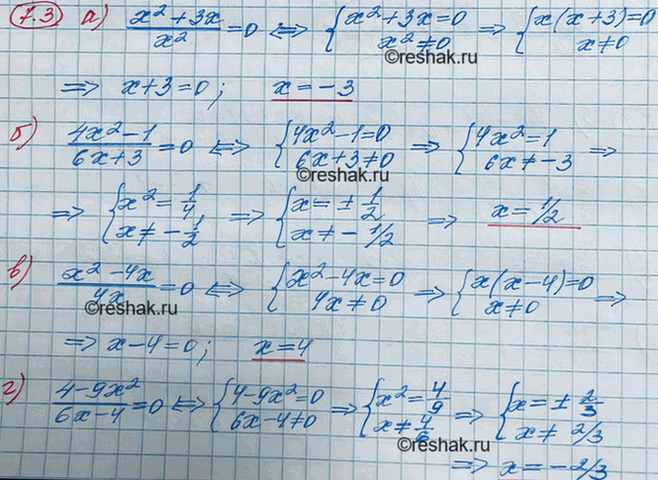 7.3 а) (x²+3x)/x² = 0 ⟺ { x²+3x=0 x²≠0 ⇒ { x(x+3)=0 x≠0
©reshak.ru
⇒ x+3=0; x=-3
б) (4x²-1)/(6x+3) = 0 ⟺ { 4x²-1=0 6x+3≠0 ⇒ { 4x²=1 6x≠-3 ⇒
©reshak.ru
⇒ { x²=1/4 x≠-1/2 ⇒ { x=±1/2 x≠-1/2 ⇒ x=1/2
в) (x²-4x)/4x = 0 ⟺ { x²-4x=0 4x≠0 ⇒ { x(x-4)=0 x≠0 ⇒
©reshak.ru
⇒ x-4=0; x=4
г) (4-9x²)/(6x-4) = 0 ⟺ { 4-9x²=0 6x-4≠0 ⇒ { x²=4/9 x≠4/6 ⇒ { x=±2/3 x≠2/3
©reshak.ru
⇒ x=-2/3